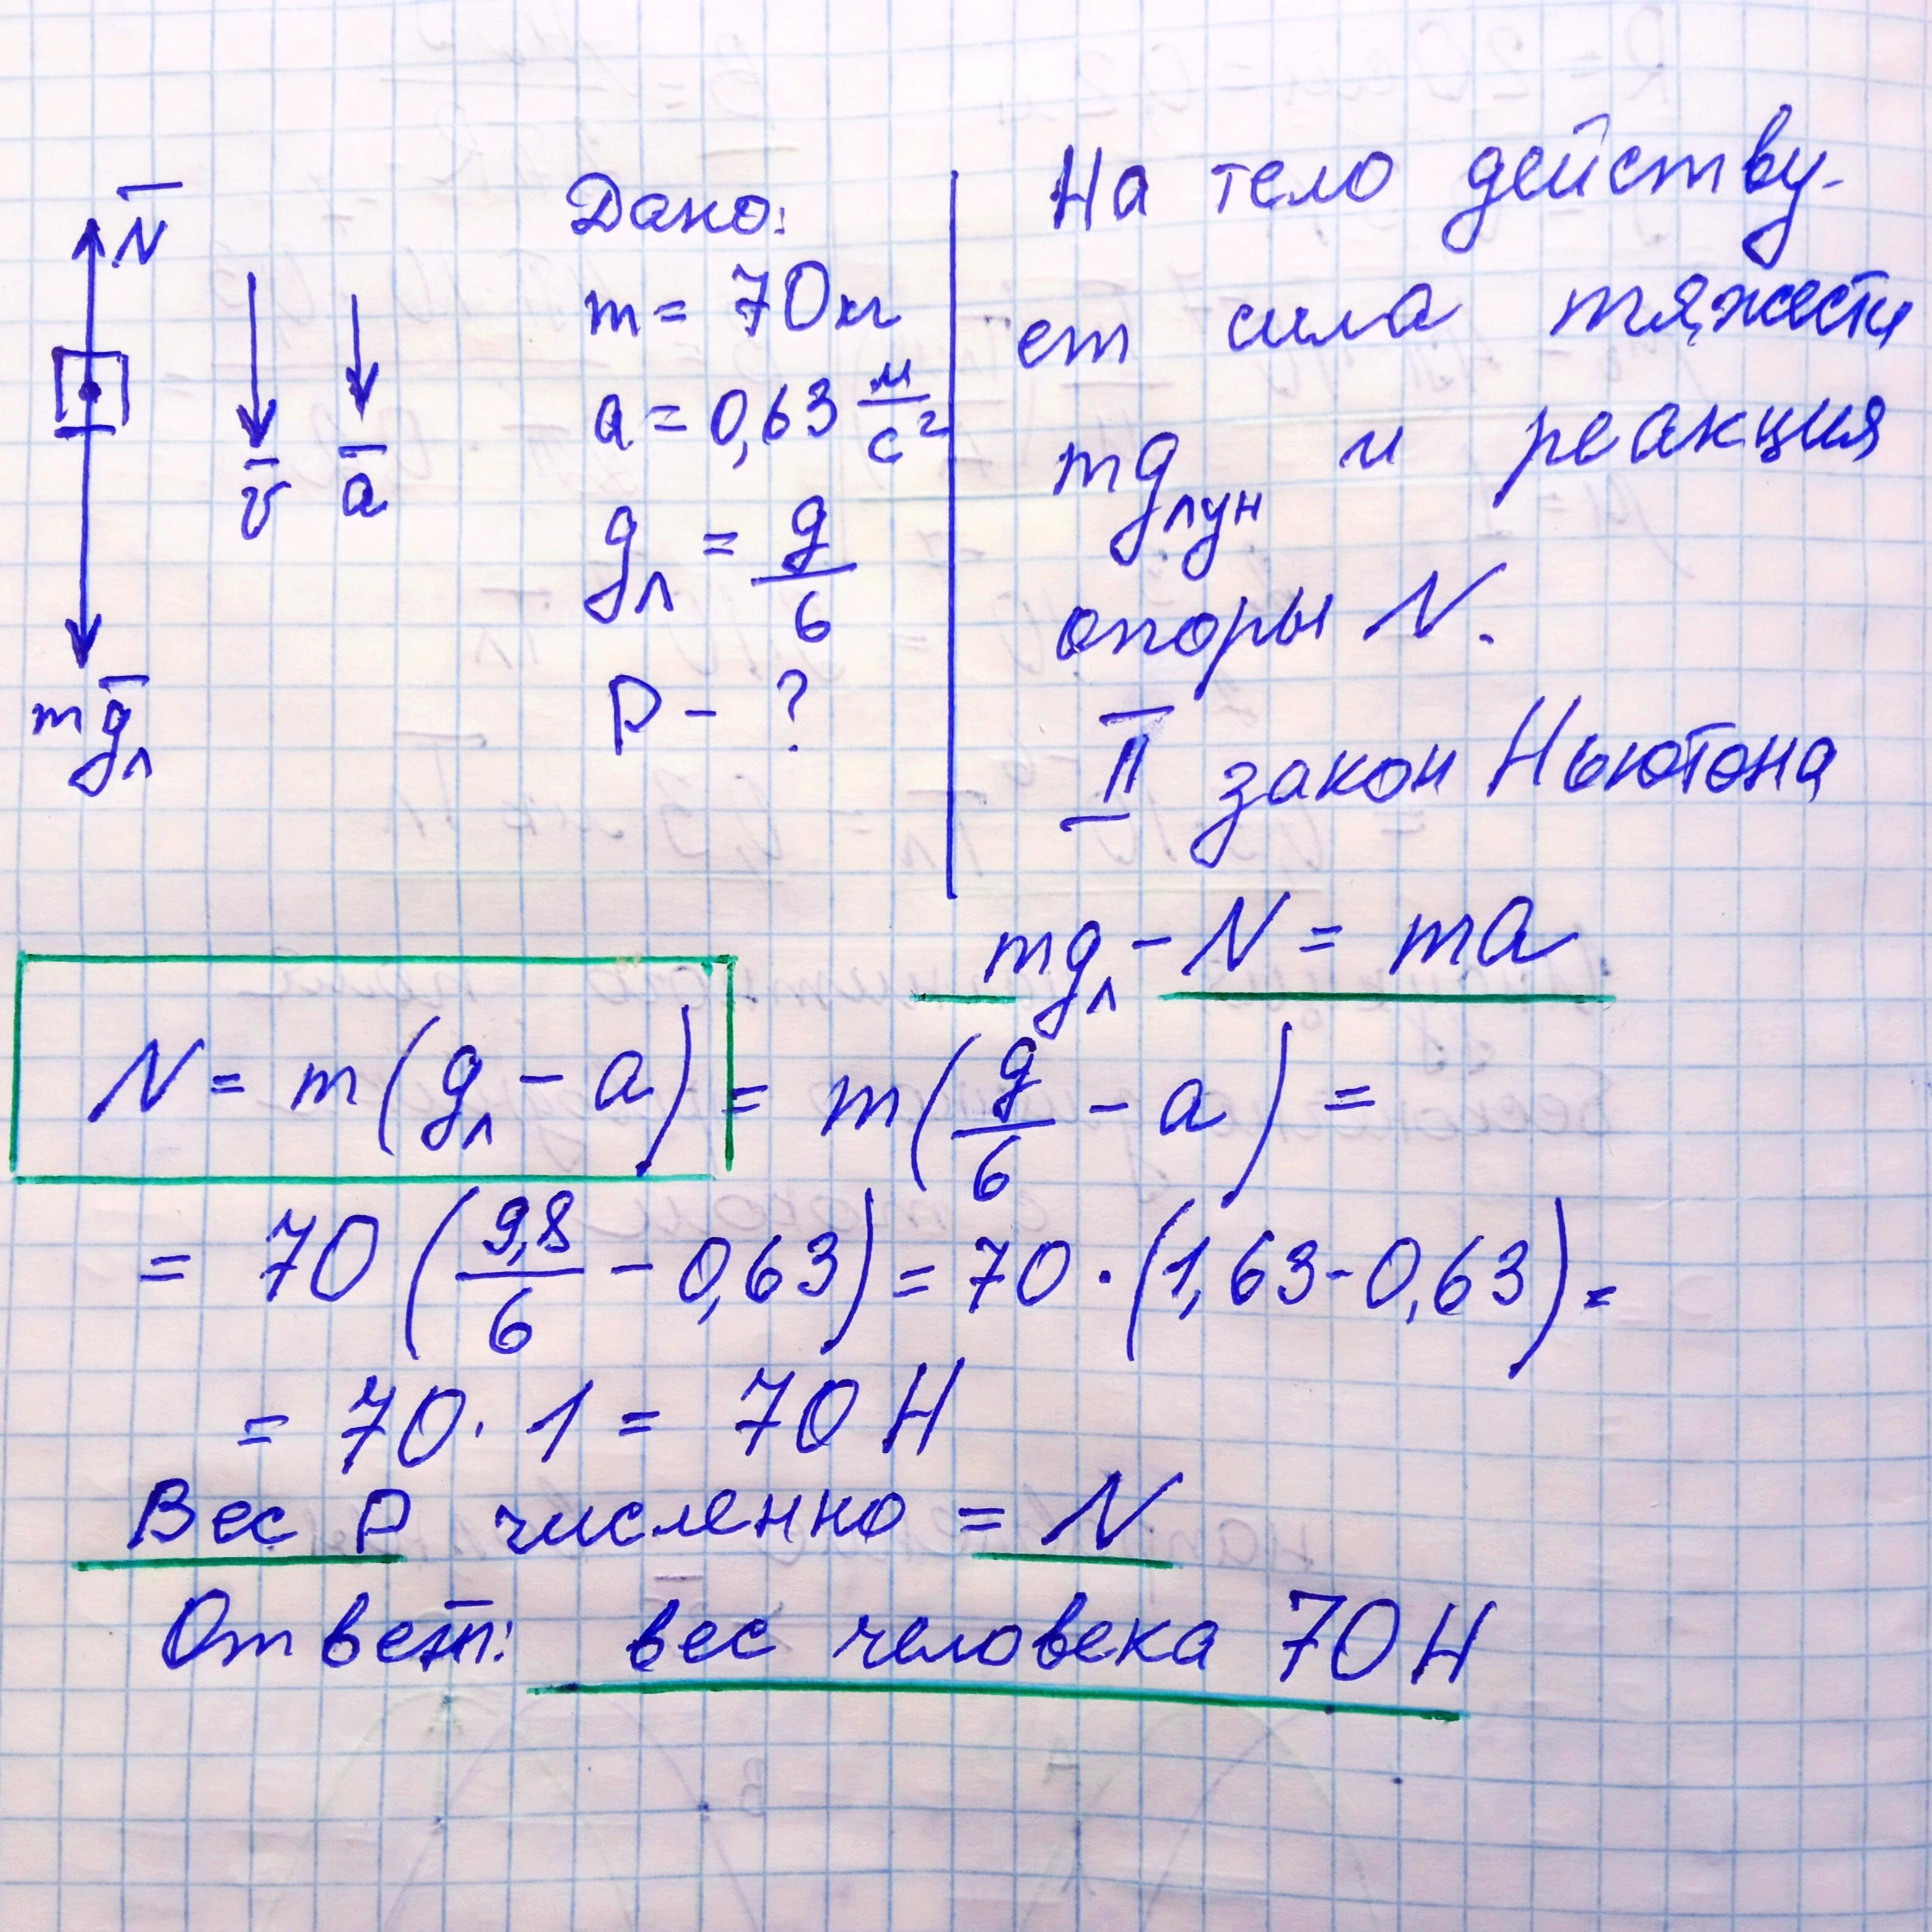 N
v
a
mgл
Дано:
m = 70 кг
a = 0,63 м/с²
gл = g/6
P - ?
На тело действу-
ет сила тяжести
mgлун и реакция
опоры N.
II закон Ньютона
mgл - N = ma
N = m(gл - a) = m(g/6 - a) =
= 70(9,8/6 - 0,63) = 70·(1,63-0,63) =
= 70·1 = 70 Н
Вес P численно = N
Ответ: вес человека 70 Н